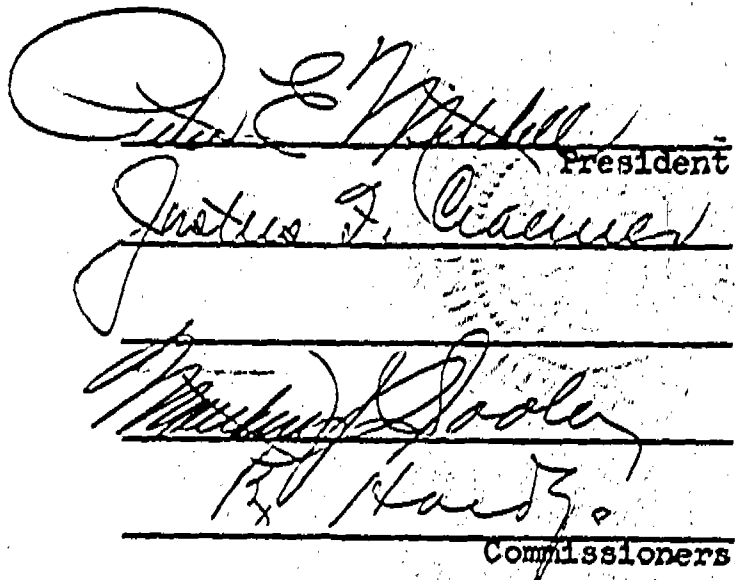 Peter E Mitchell
President
Justus F. Craemer
Matthew J. Dooley
Commissioners